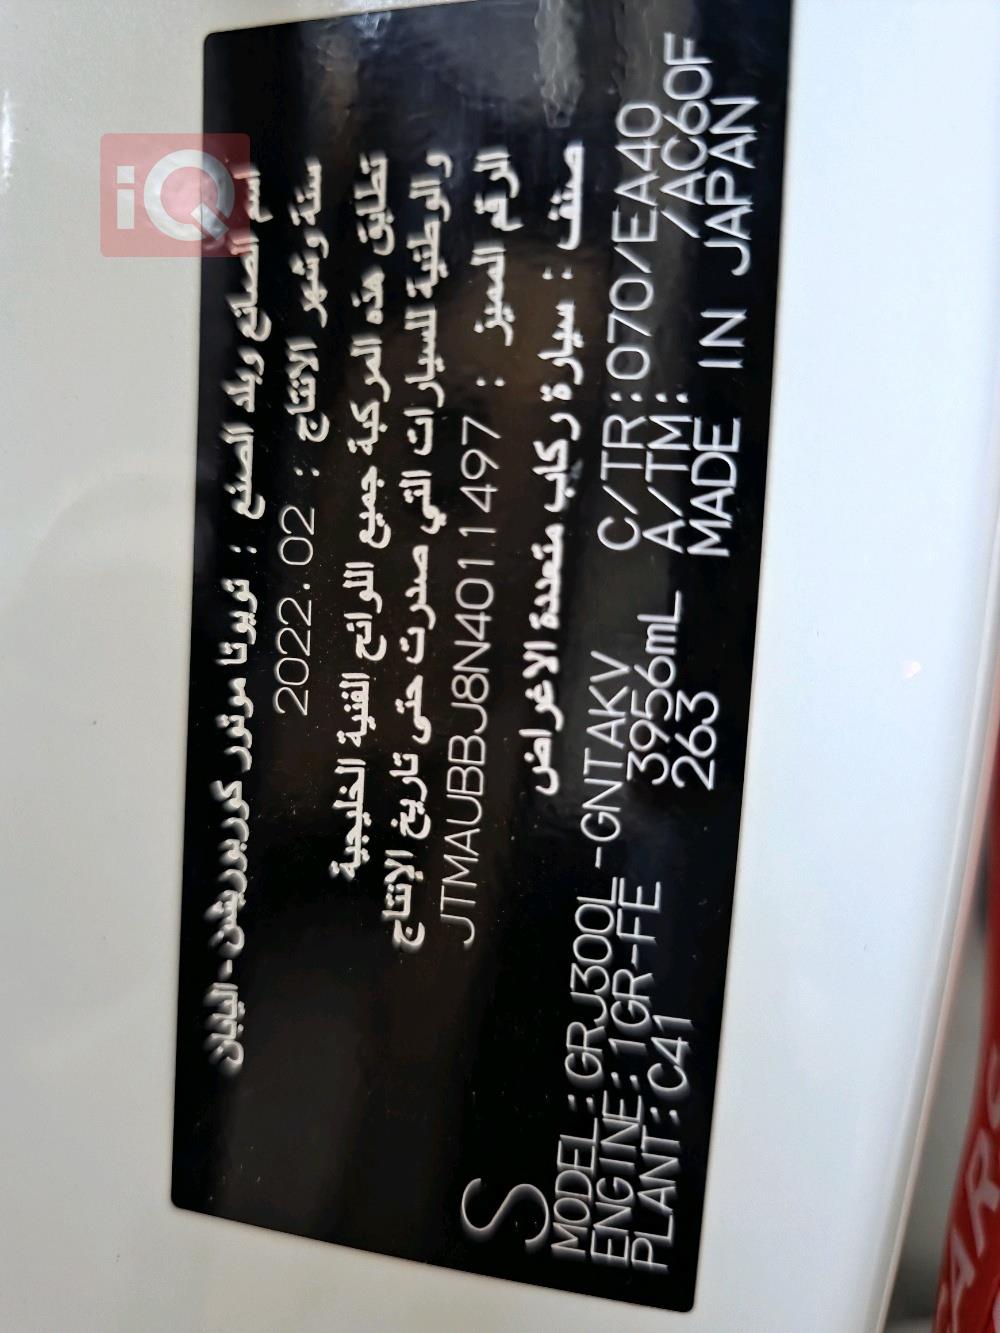 iQ
اسم الصانع وبلد الصنع : تويوتا موتور كوربوريشن - اليابان
سنة وشهر الانتاج : 2022.02
تطابق هذه المركبة جميع اللوائح الفنية الخليجية
والوطنية للسيارات التي صدرت حتى تاريخ الإنتاج
الرقم المميز : JTMAUBBJ8N4011497
صنف : سيارة ركاب متعددة الاغراض
S
MODEL :GRJ300L-GNTAKV C/TR:070/EA40
ENGINE:1GR-FE 3956mL A/TM: /AC60F
PLANT:C41 263 MADE IN JAPAN